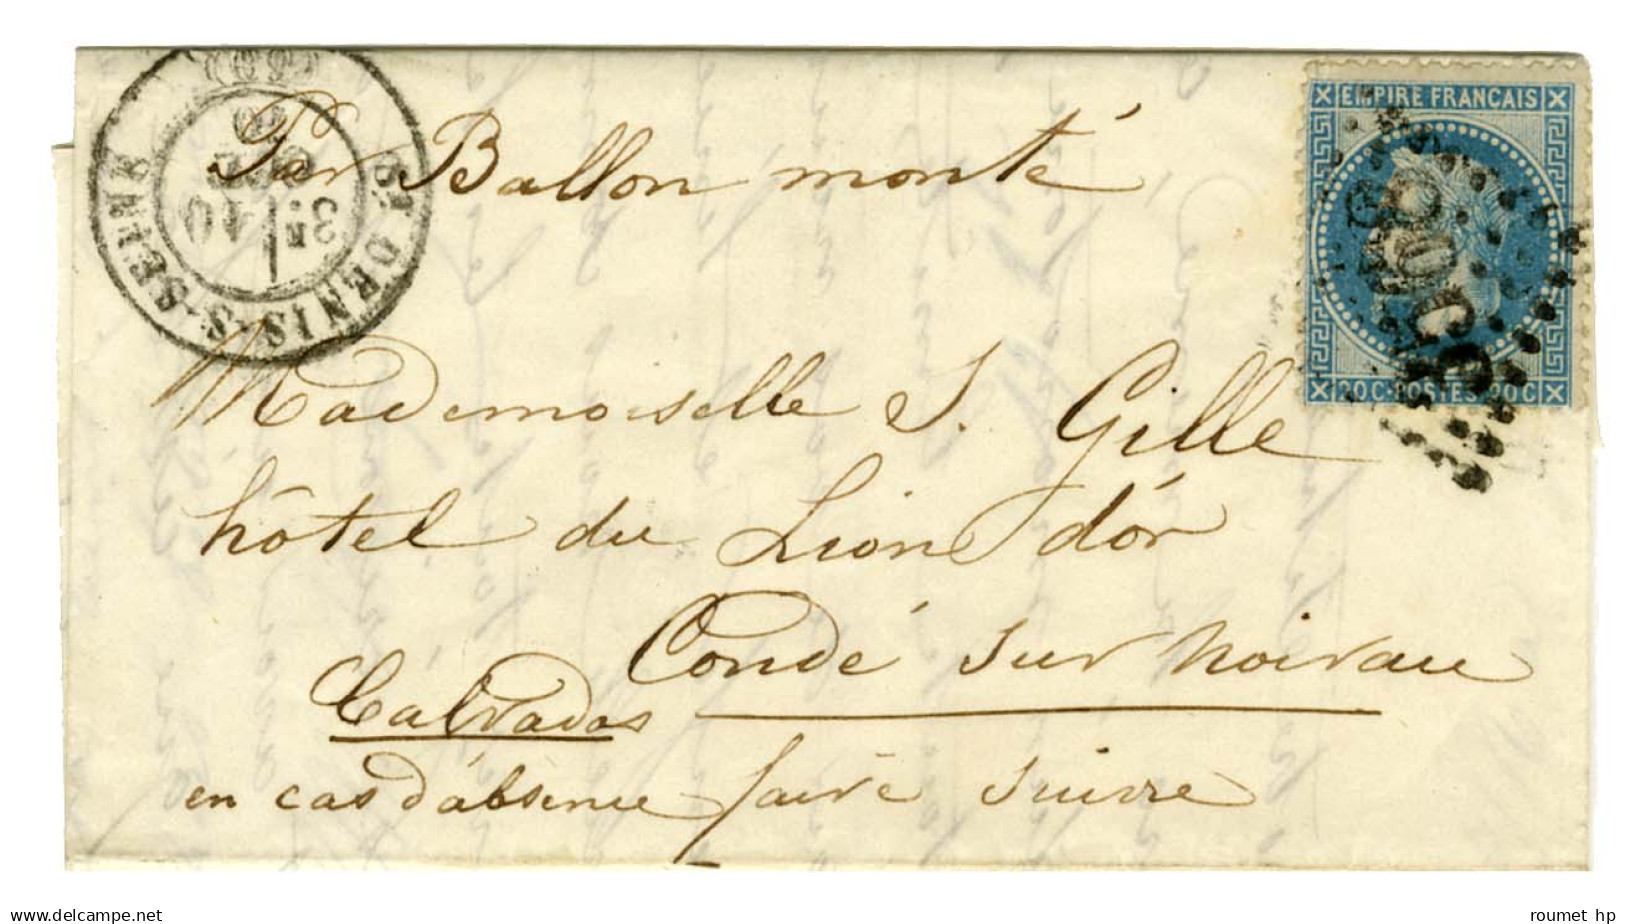 Par Ballon monté
ST DENIS-S-SEINE
3E
10
(60)
EMPIRE FRANCAIS
20 C POSTES 20 C
Mademoiselle J. Gille
hôtel du Lion d'or
Condé sur Noireau
Calvados
en cas d'absence faire suivre
www.delcampe.net
roumet hp